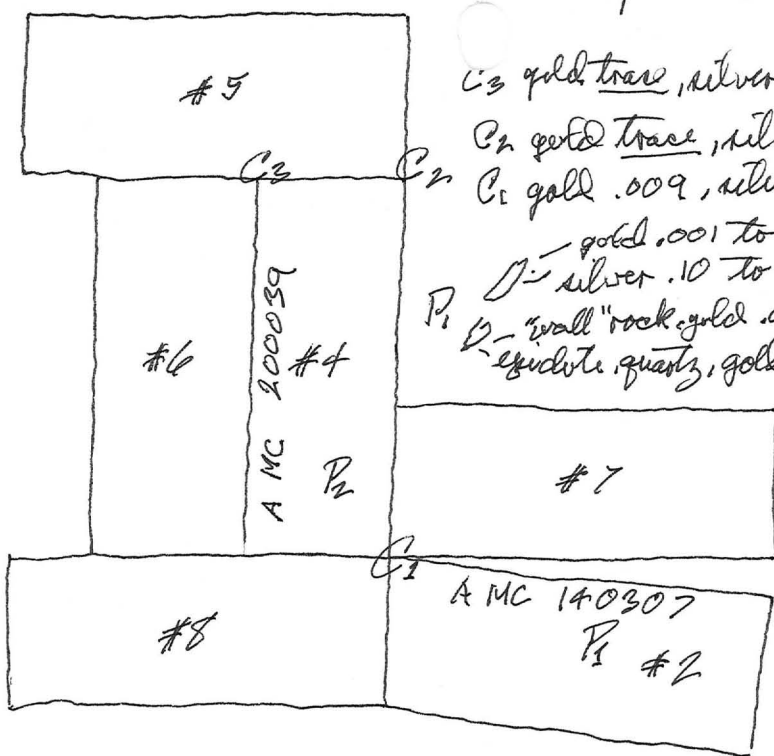 #5
C3 gold trace, silver
C2 gold trace, sil
C1 gold .009, silv
gold .001 to
silver .10 to
P1
"wall" rock gold
epidote, quartz, gold
C3
C2
#6
AMC 200039
#4
P2
#7
C1
AMC 140307
P1 #2
#8